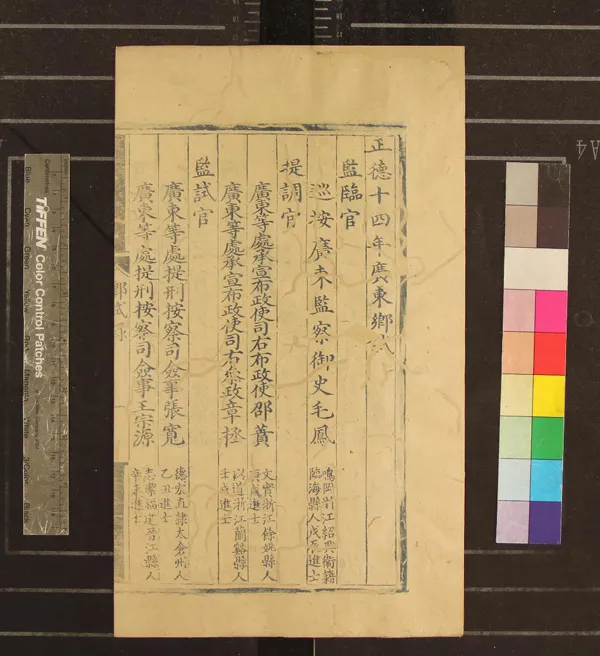 正德十四年廣東鄉試
監臨官
巡按廣東監察御史毛鳳
鳴岡浙江紹興衛籍
臨海縣人戊辰進士
提調官
廣東等處承宣布政使司右布政使邵蕡
文實浙江餘姚縣人
庚戌進士
廣東等處承宣布政使司右參政章拯
以道浙江蘭谿縣人
壬戌進士
監試官
廣東等處提刑按察司僉事張寬
德宏直隸太倉州人
乙丑進士
廣東等處提刑按察司僉事王宗源
志潔福建晉江縣人
辛未進士
鄉試錄
TIFFEN Color Control Patches
Blue
Cyan
Green
Yellow
Red
Magenta
White
Black